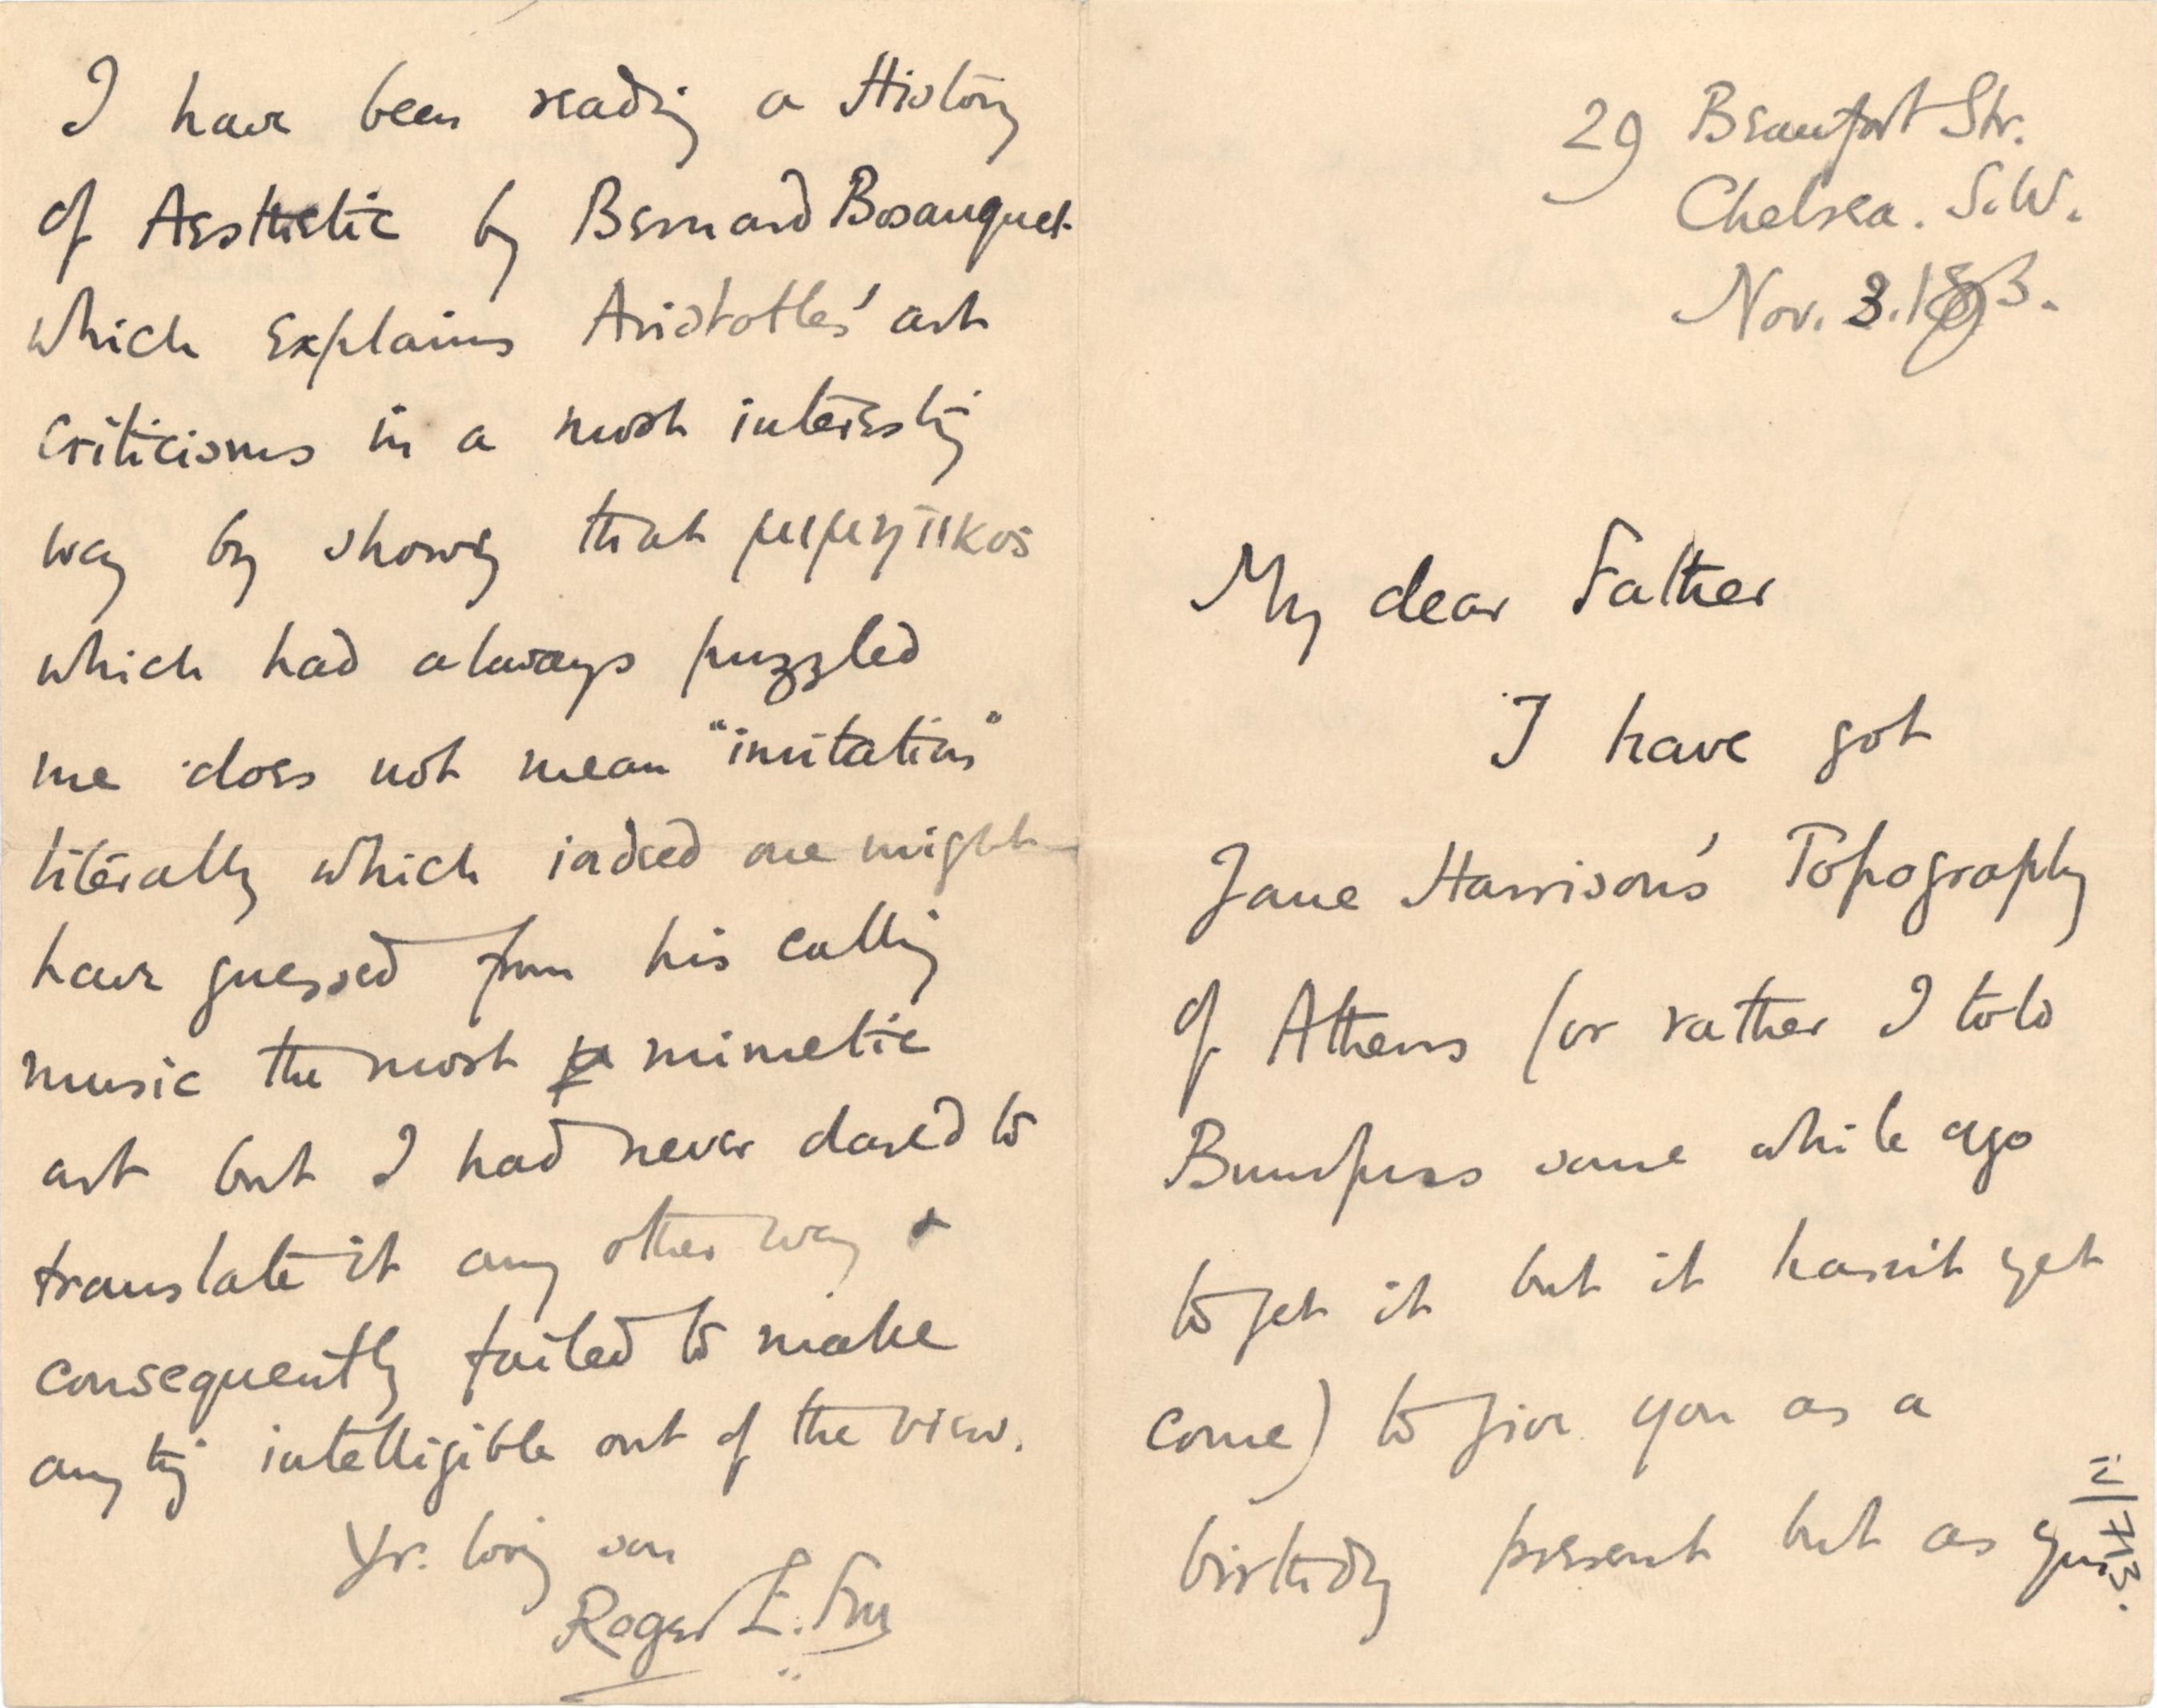 29 Beaufort Str.
Chelsea. S.W.
Nov. 3. 1893.
My dear Father
I have got
Jane Harrison's Topography
of Athens (or rather I told
Bumpuss some while ago
to get it but it hasn't yet
come) to give you as a
birthday present but as you
I have been reading a History
of Aesthetic by Bernard Bosanquet
which explains Aristotles' art
criticisms in a most interesting
way by showing that μιμητικος
which had always puzzled
me does not mean "imitation"
literally which indeed one might
have guessed from his calling
music the most mimetic
art but I had never dared to
translate it any other way &
consequently failed to make
anything intelligible out of the view.
Yr. loving son
Roger E. Fry